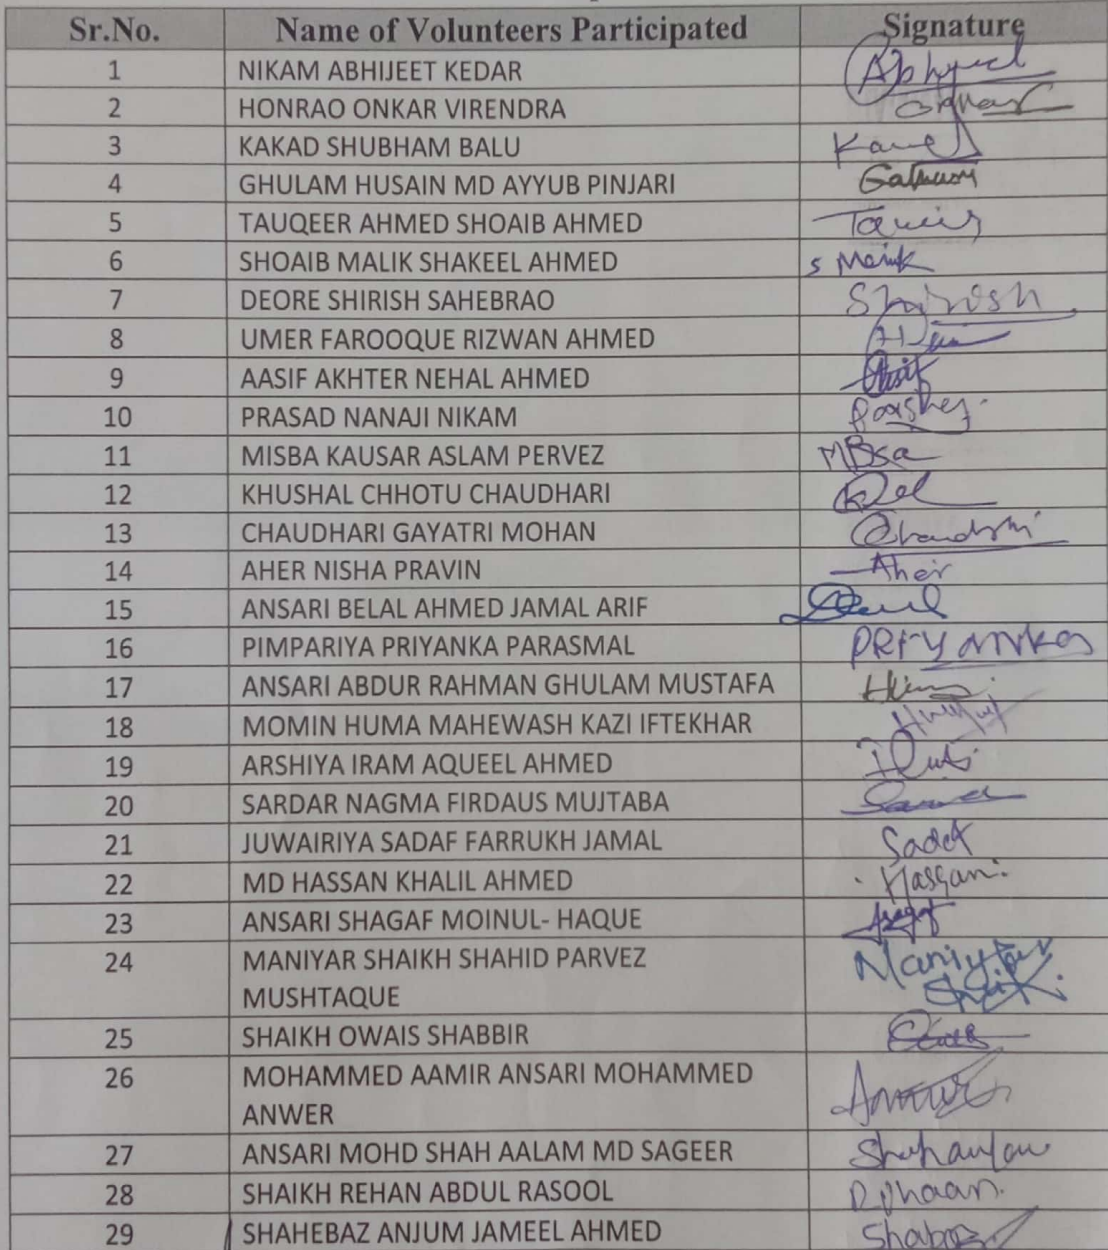 Sr.No. Name of Volunteers Participated Signature
1 NIKAM ABHIJEET KEDAR Abhijeet
2 HONRAO ONKAR VIRENDRA
3 KAKAD SHUBHAM BALU
4 GHULAM HUSAIN MD AYYUB PINJARI
5 TAUQEER AHMED SHOAIB AHMED
6 SHOAIB MALIK SHAKEEL AHMED S Malik
7 DEORE SHIRISH SAHEBRAO Shirish
8 UMER FAROOQUE RIZWAN AHMED
9 AASIF AKHTER NEHAL AHMED Asif
10 PRASAD NANAJI NIKAM
11 MISBA KAUSAR ASLAM PERVEZ
12 KHUSHAL CHHOTU CHAUDHARI
13 CHAUDHARI GAYATRI MOHAN
14 AHER NISHA PRAVIN Aher
15 ANSARI BELAL AHMED JAMAL ARIF
16 PIMPARIYA PRIYANKA PARASMAL PRIYANKA
17 ANSARI ABDUR RAHMAN GHULAM MUSTAFA
18 MOMIN HUMA MAHEWASH KAZI IFTEKHAR
19 ARSHIYA IRAM AQUEEL AHMED
20 SARDAR NAGMA FIRDAUS MUJTABA
21 JUWAIRIYA SADAF FARRUKH JAMAL Sadaf
22 MD HASSAN KHALIL AHMED Hassan
23 ANSARI SHAGAF MOINUL- HAQUE
24 MANIYAR SHAIKH SHAHID PARVEZ Maniyar
MUSHTAQUE Shaikh
25 SHAIKH OWAIS SHABBIR
26 MOHAMMED AAMIR ANSARI MOHAMMED
ANWER
27 ANSARI MOHD SHAH AALAM MD SAGEER
28 SHAIKH REHAN ABDUL RASOOL
29 SHAHEBAZ ANJUM JAMEEL AHMED